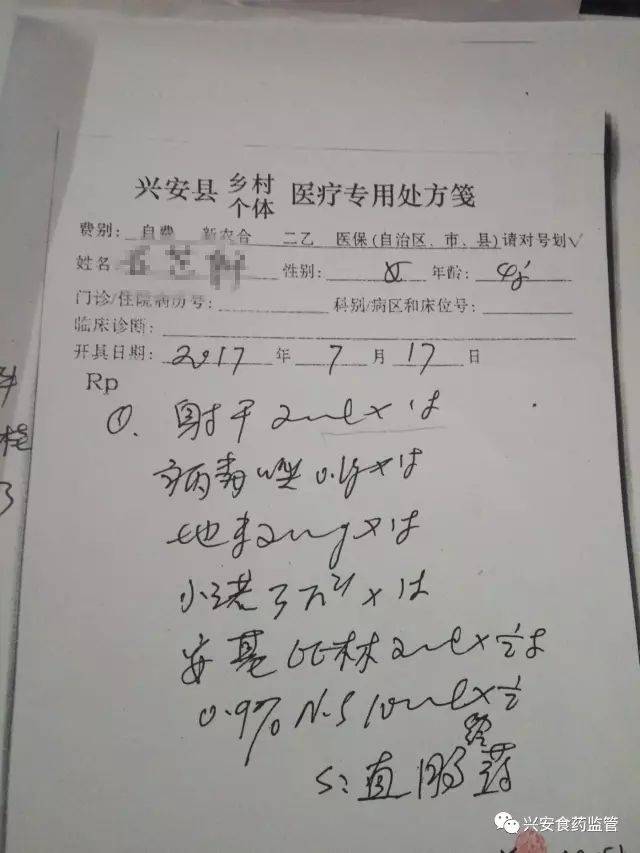 兴安县 乡村 个体 医疗专用处方笺
费别: 自费 新农合 二乙 医保(自治区、市、县)请对号划√
姓名 性别: 女 年龄: 4岁
门诊/住院病历号: 科别/病区和床位号:
临床诊断:
开具日期: 2017 年 7 月 17 日
Rp
①. 射干 2ml x 1支
病毒唑 0.1g x 1支
地米 2mg x 1支
小诺 3万 x 1支
安基比林 2ml x ½支
0.9% N.S 10ml x ½
S: 直肠给药
兴安食药监管